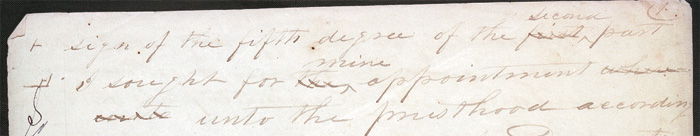 second
sign of the fifth degree of the first, part
mine
I sought for the, appointment
unto the priesthood according